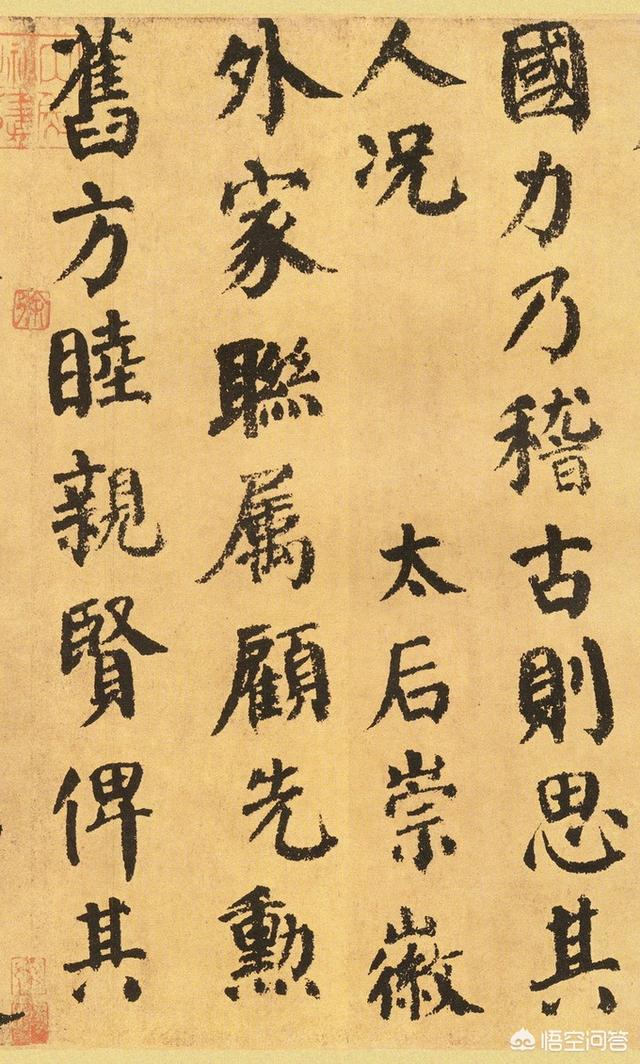 國力乃稽古則思其
人况 太后崇徽
外家聯属顧先勳
舊方睦親賢俾其
悟空问答